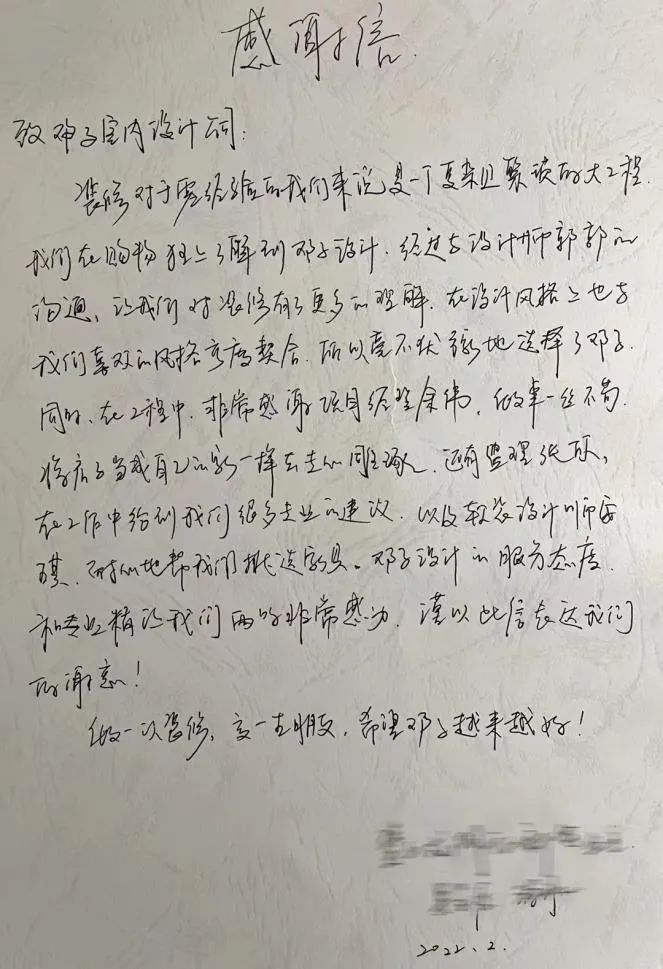 感谢信
致邓子室内设计公司:
装修对于零经验的我们来说是一个复杂且繁琐的大工程.
我们在购物狂上了解到邓子设计.经过与设计师郭郭的
沟通、让我们对装修有了更多的理解.在设计风格上也与
我们喜欢的风格高度契合.所以毫不犹豫地选择了邓子.
同时、在工程中.非常感谢项目经理余伟,做事一丝不苟.
将房子当成自己的家一样去走心雕琢.还有监理张
在工作中给到我们很多专业的建议.以及软装设计师
琪.耐心地帮我们挑选家具。邓子设计的服务态度
和专业精让我们两的非常感动.谨以此信表达我们
的谢意!
做一次装修、交一生朋友.希望邓子越来越好!
2022.2.